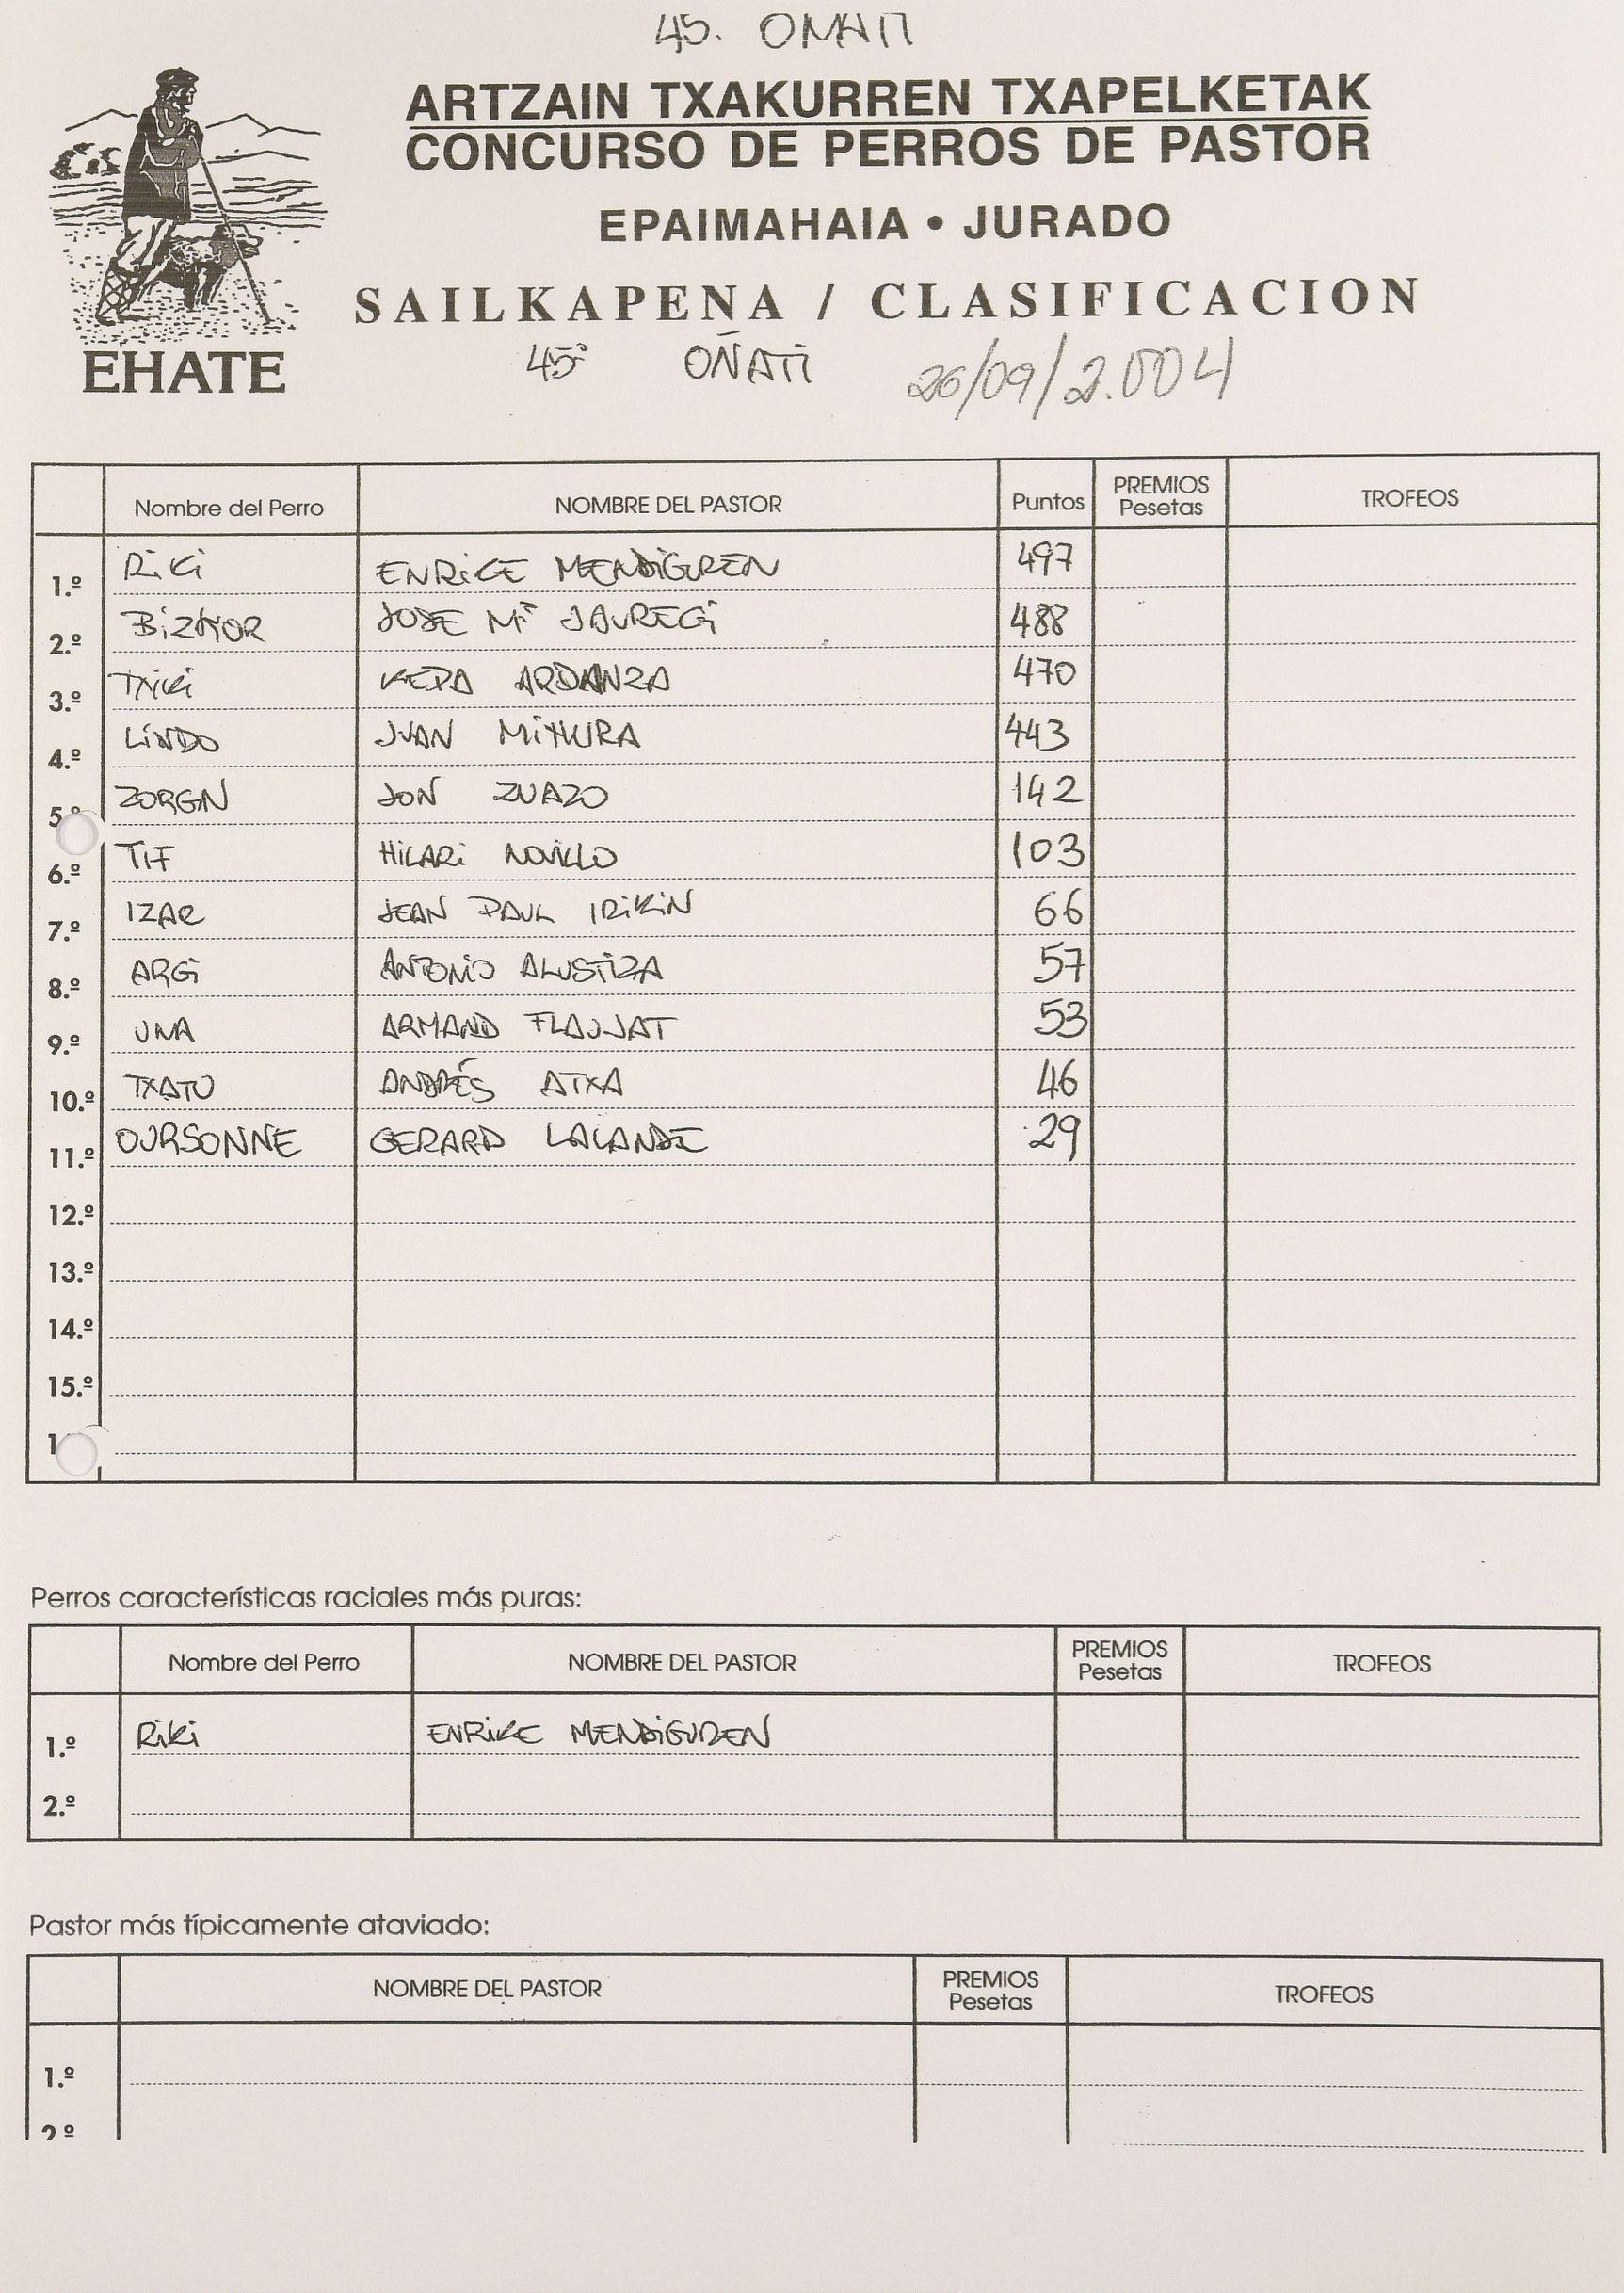 45. OÑATI
ARTZAIN TXAKURREN TXAPELKETAK
CONCURSO DE PERROS DE PASTOR
EPAIMAHAIA • JURADO
SAILKAPENA / CLASIFICACION
EHATE
45º OÑATI 26/09/2.004
Nombre del Perro NOMBRE DEL PASTOR Puntos PREMIOS Pesetas TROFEOS
1.º RiKi ENRiKE MENDiGUREN 497
2.º BiZKOR JOSE Mª JAUREGi 488
3.º TXiKi KEPA ARDANZA 470
4.º LiNDO JUAN MiTXURA 443
5.º ZORGIN JON ZUAZO 142
6.º TIF HiLARi NOViLLO 103
7.º IZAR JEAN PAUL IRiKiN 66
8.º ARGi ANTONiO ALUSTiZA 57
9.º UNA ARMAND FLAUJAT 53
10.º TXATO ANDRÉS ATXA 46
11.º OURSONNE GERARD LALANDE 29
12.º
13.º
14.º
15.º
1
Perros características raciales más puras:
Nombre del Perro NOMBRE DEL PASTOR PREMIOS Pesetas TROFEOS
1.º RiKi ENRiKE MENDiGUREN
2.º
Pastor más típicamente ataviado:
NOMBRE DEL PASTOR PREMIOS Pesetas TROFEOS
1.º
2.º